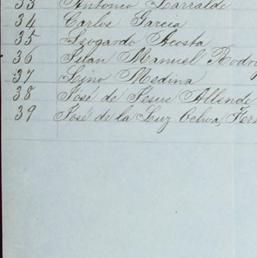 33 Antonio Larralde
34 Carlos Garcia
35 Isogardo Acosta
36 Juan Manuel Rodri
37 Lino Medina
38 José de Jesus Allende
39 José de la Luz Ochoa, Fer